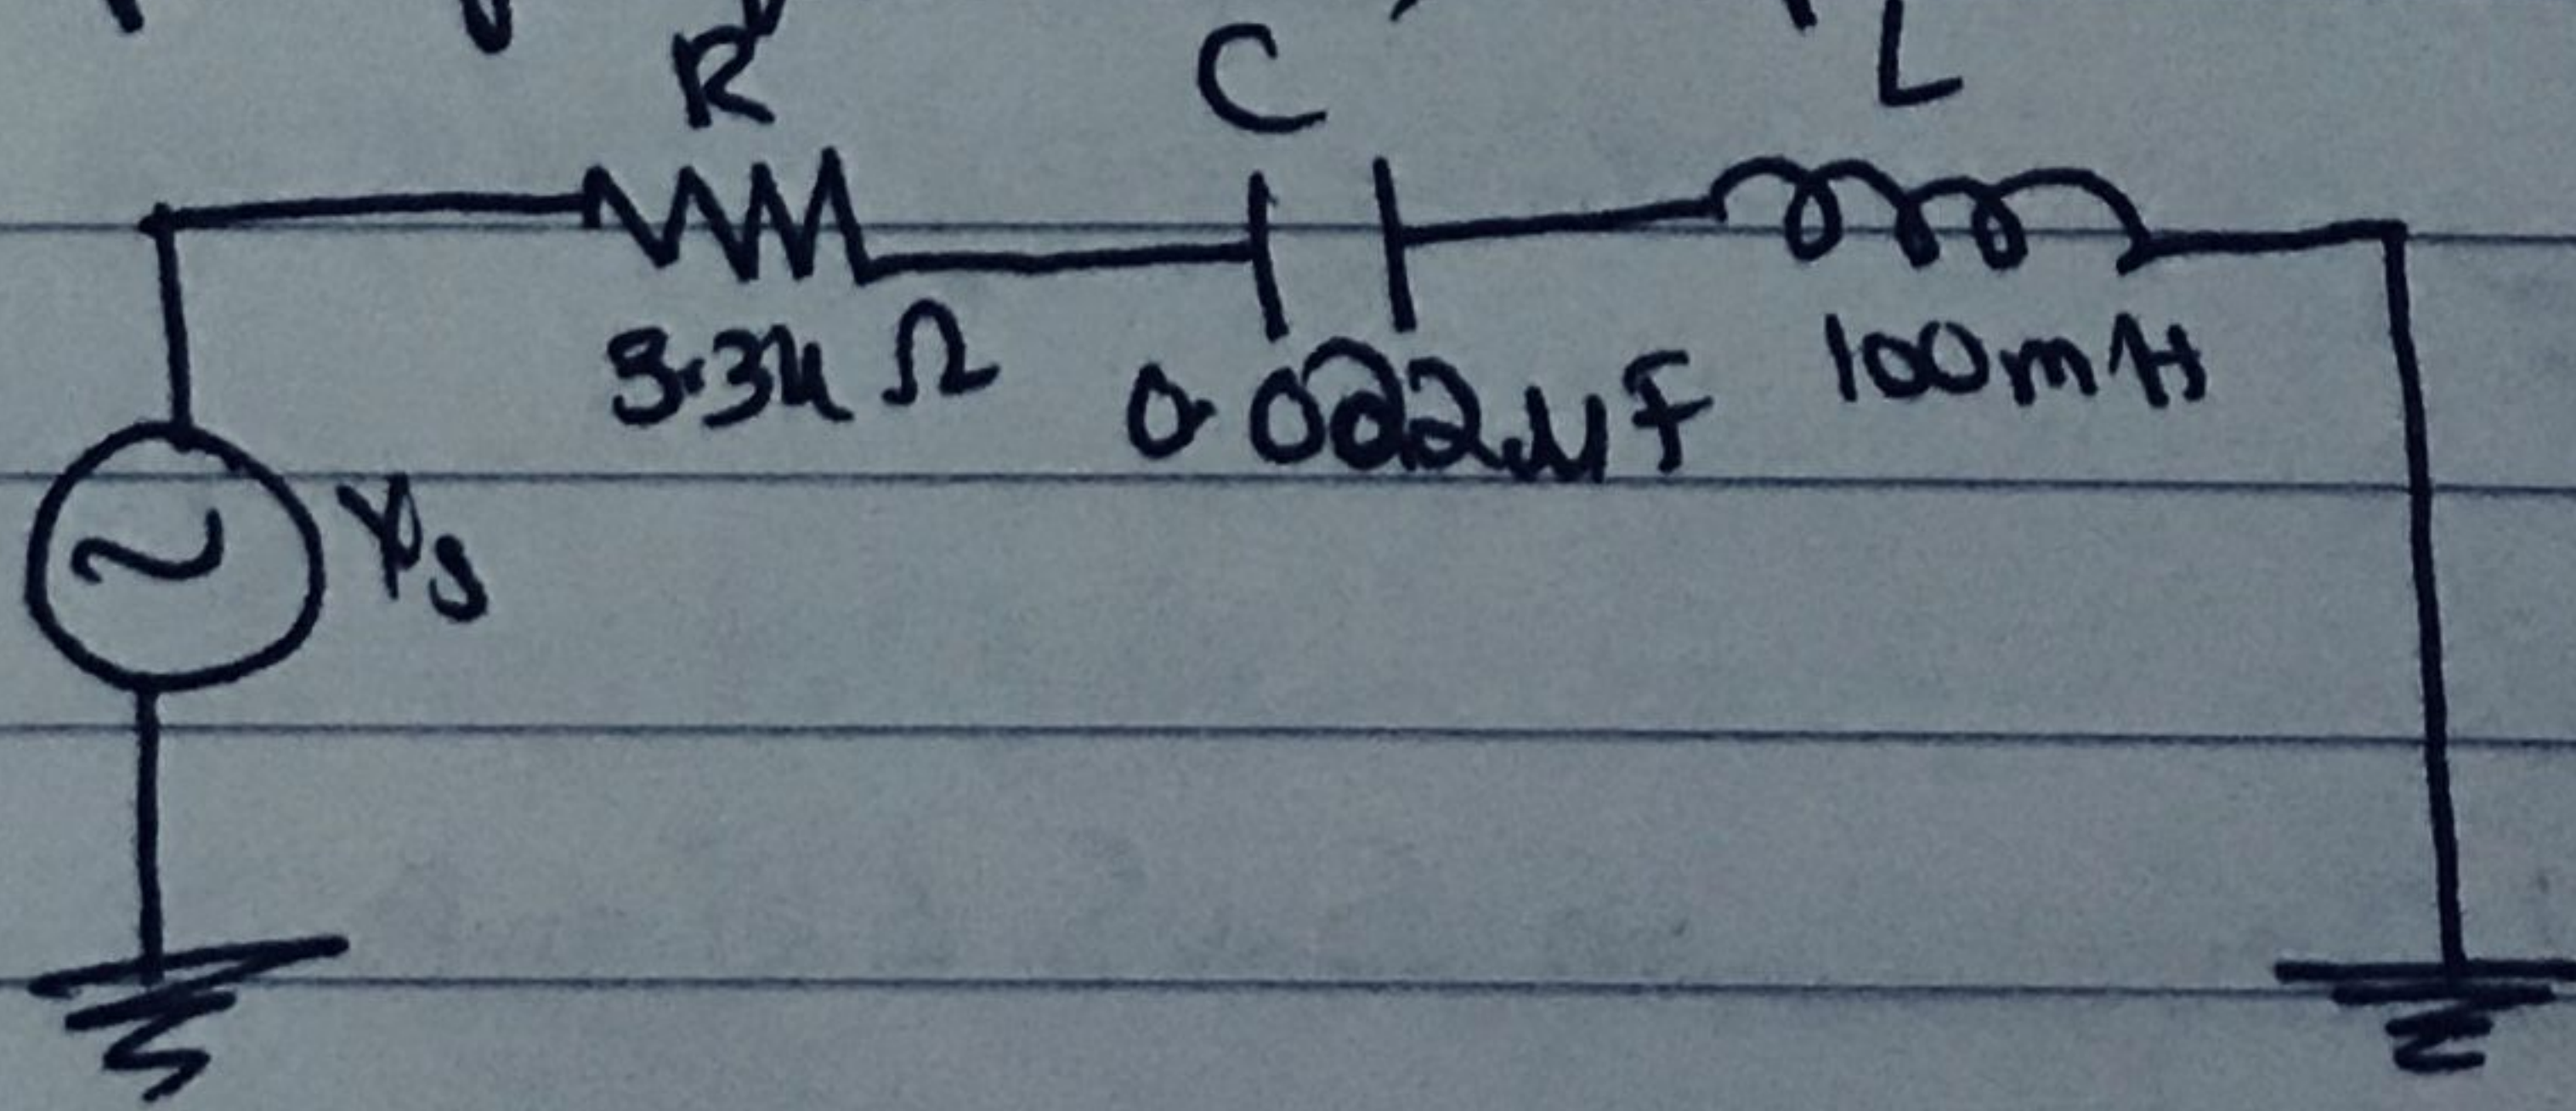 R C L
3.3k Ω 0.022μF 100mH
Vs